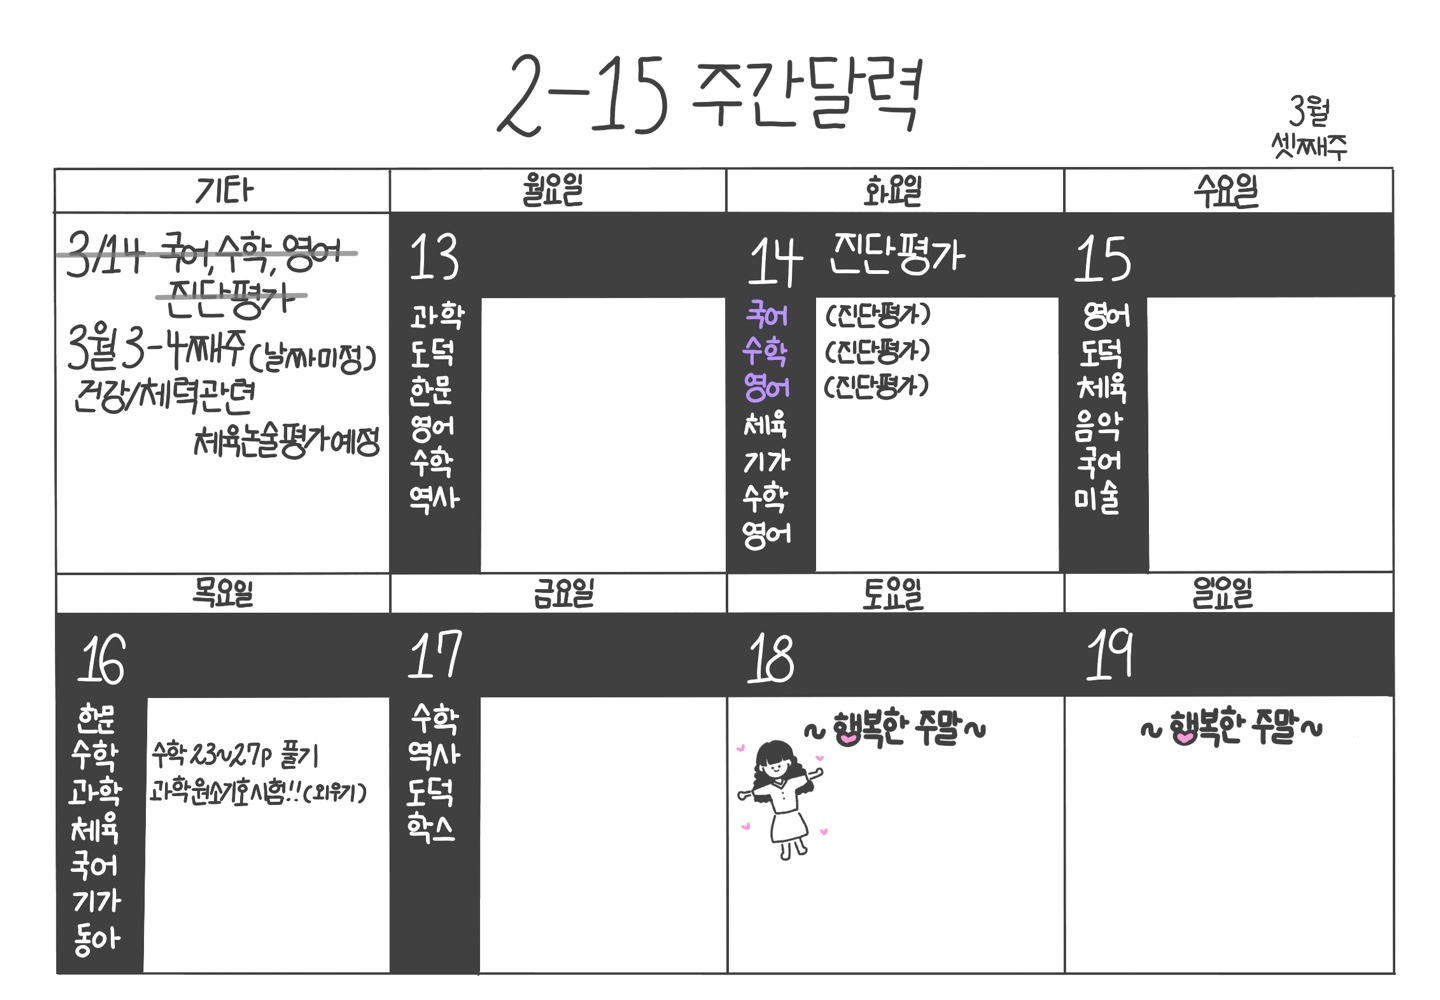 2-15 주간달력
3월
셋째주
기타
월요일
화요일
수요일
3/14 국어, 수학, 영어
진단평가
3월 3-4째주 (날짜미정)
건강/체력관련
체육논술평가예정
13
과학
도덕
한문
영어
수학
역사
14 진단평가
국어 (진단평가)
수학 (진단평가)
영어 (진단평가)
체육
기가
수학
영어
15
영어
도덕
체육
음악
국어
미술
목요일
금요일
토요일
일요일
16
한문
수학 수학 23~27p 풀기
과학 과학원소기호시험!! (외우기)
체육
국어
기가
동아
17
수학
역사
도덕
학스
18
~행복한 주말~
19
~행복한 주말~